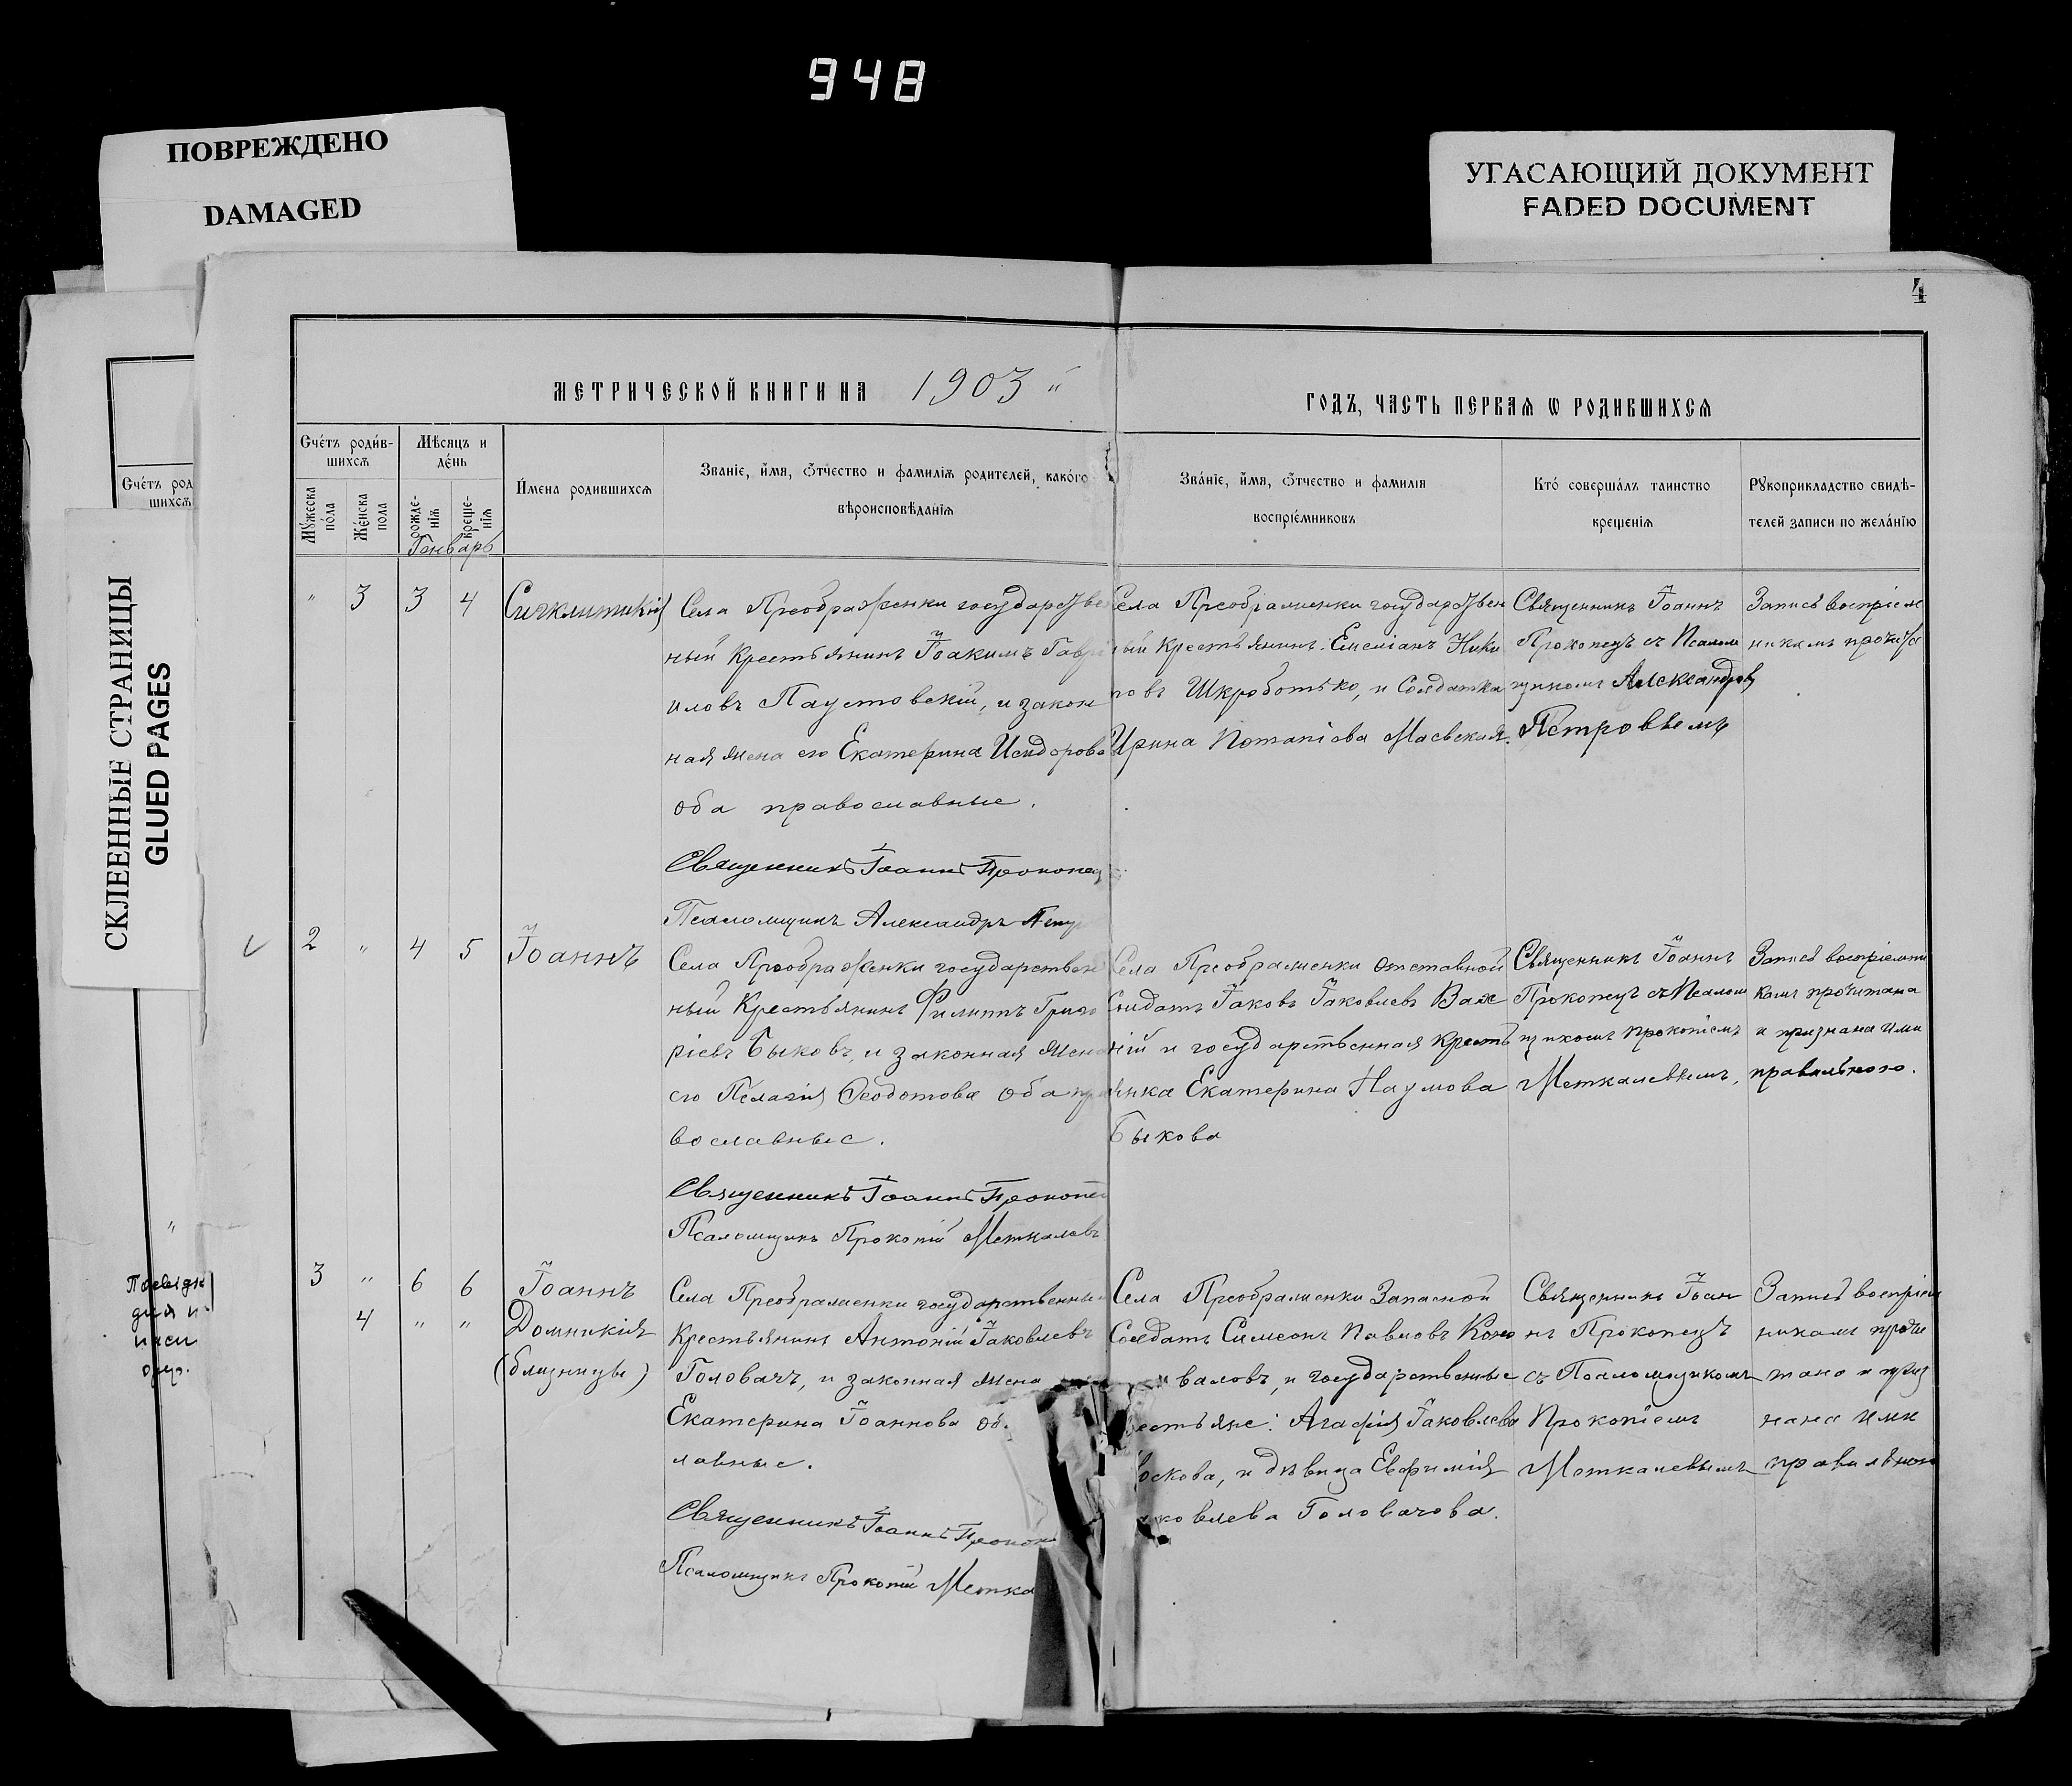 948
ПОВРЕЖДЕНО
DAMAGED
УГАСАЮЩИЙ ДОКУМЕНТ
FADED DOCUMENT
СКЛЕЕННЫЕ СТРАНИЦЫ
GLUED PAGES
4
МЕТРИЧЕСКОЙ КНИГИ НА 1903
ГОДЪ, ЧАСТЬ ПЕРВАѦ Ѡ РОДИВШИХСѦ
Счétъ род
шихсѧ
Счétъ роди́в-
шихсѧ
Мѣ́сѧцъ и
де́нь
Мꙋжеска
по́ла
Же́нска
пола
рожде-
нїѧ
креще-
нїѧ
Генварь
И҆́мена родившихсѧ
Званїе, и҆́мѧ, ѻ҆́тчество и фамилїѧ родителей, како́гѡ
вѣроисповѣ́данїѧ
Зва́нїе, и҆́мѧ, ѻ҆́тчество и фамилїѧ
воспрїе́мниковъ
Кто́ соверша́лъ таинство
крещенїѧ
Рꙋкоприкладство свидѣ́-
телей записи по жела́нїю
" 3 3 4 Сигклитикія
Села Преображенки государствен
ный Крестьянинъ Іоакимъ Гаврі
иловъ Паустовскій, и закон
ная жена его Екатерина Исидорова
оба православные.
Священникъ Іоаннъ Прокопец
Псаломщикъ Александръ Петр
Села Преображенки государствен
ный Крестьянинъ Емеліанъ Ники
ровъ Шкроботько, и Солдатка
Ирина Потапіева Маевская.
Священникъ Іоаннъ
Прокопецъ съ Псалом
щикомъ Александр
Петроввемъ
Запись воспріем
никамъ прочит
2 " 4 5 Іоаннъ
Села Преображенки государствен
ный Крестьянинъ Филиппъ Григо
ріевъ Быковъ, и законная жена
его Пелагія Ѳеодотова оба пра
вославные.
Священникъ Іоаннъ Прокопец
Псаломщикъ Прокопій Меткалевъ
Села Преображенки отставной
Солдатъ Іаковъ Іаковлевъ Важ
ній и государственная Кресть
янка Екатерина Наумова
Быкова
Священникъ Іоаннъ
Прокопецъ съ Псалом
щикомъ Прокопіемъ
Меткалевымъ,
Запись воспріемни
камъ прочитана
и признана ими
правильною.
3 " 6 6 Іоаннъ
4 " " Домникія
(близнецы)
Села Преображенки государственный
Крестьянинъ Антоній Іаковлевъ
Головачъ, и законная жена
Екатерина Іоаннова об
лавные.
Священникъ Іоаннъ Прокоп
Псаломщикъ Прокопій Метка
Села Преображенки Запасной
Солдатъ Симеонъ Павловъ Коно
валовъ, и государственные
естьяне: Агафія Іаковлева
оскова, и дѣвица Евфимія
ковлева Головачова.
Священникъ Іоан
нъ Прокопецъ
съ Псаломщикомъ
Прокопіемъ
Меткалевымъ
Запись воспріем
никамъ прочи
тано и приз
нана ими
правильною